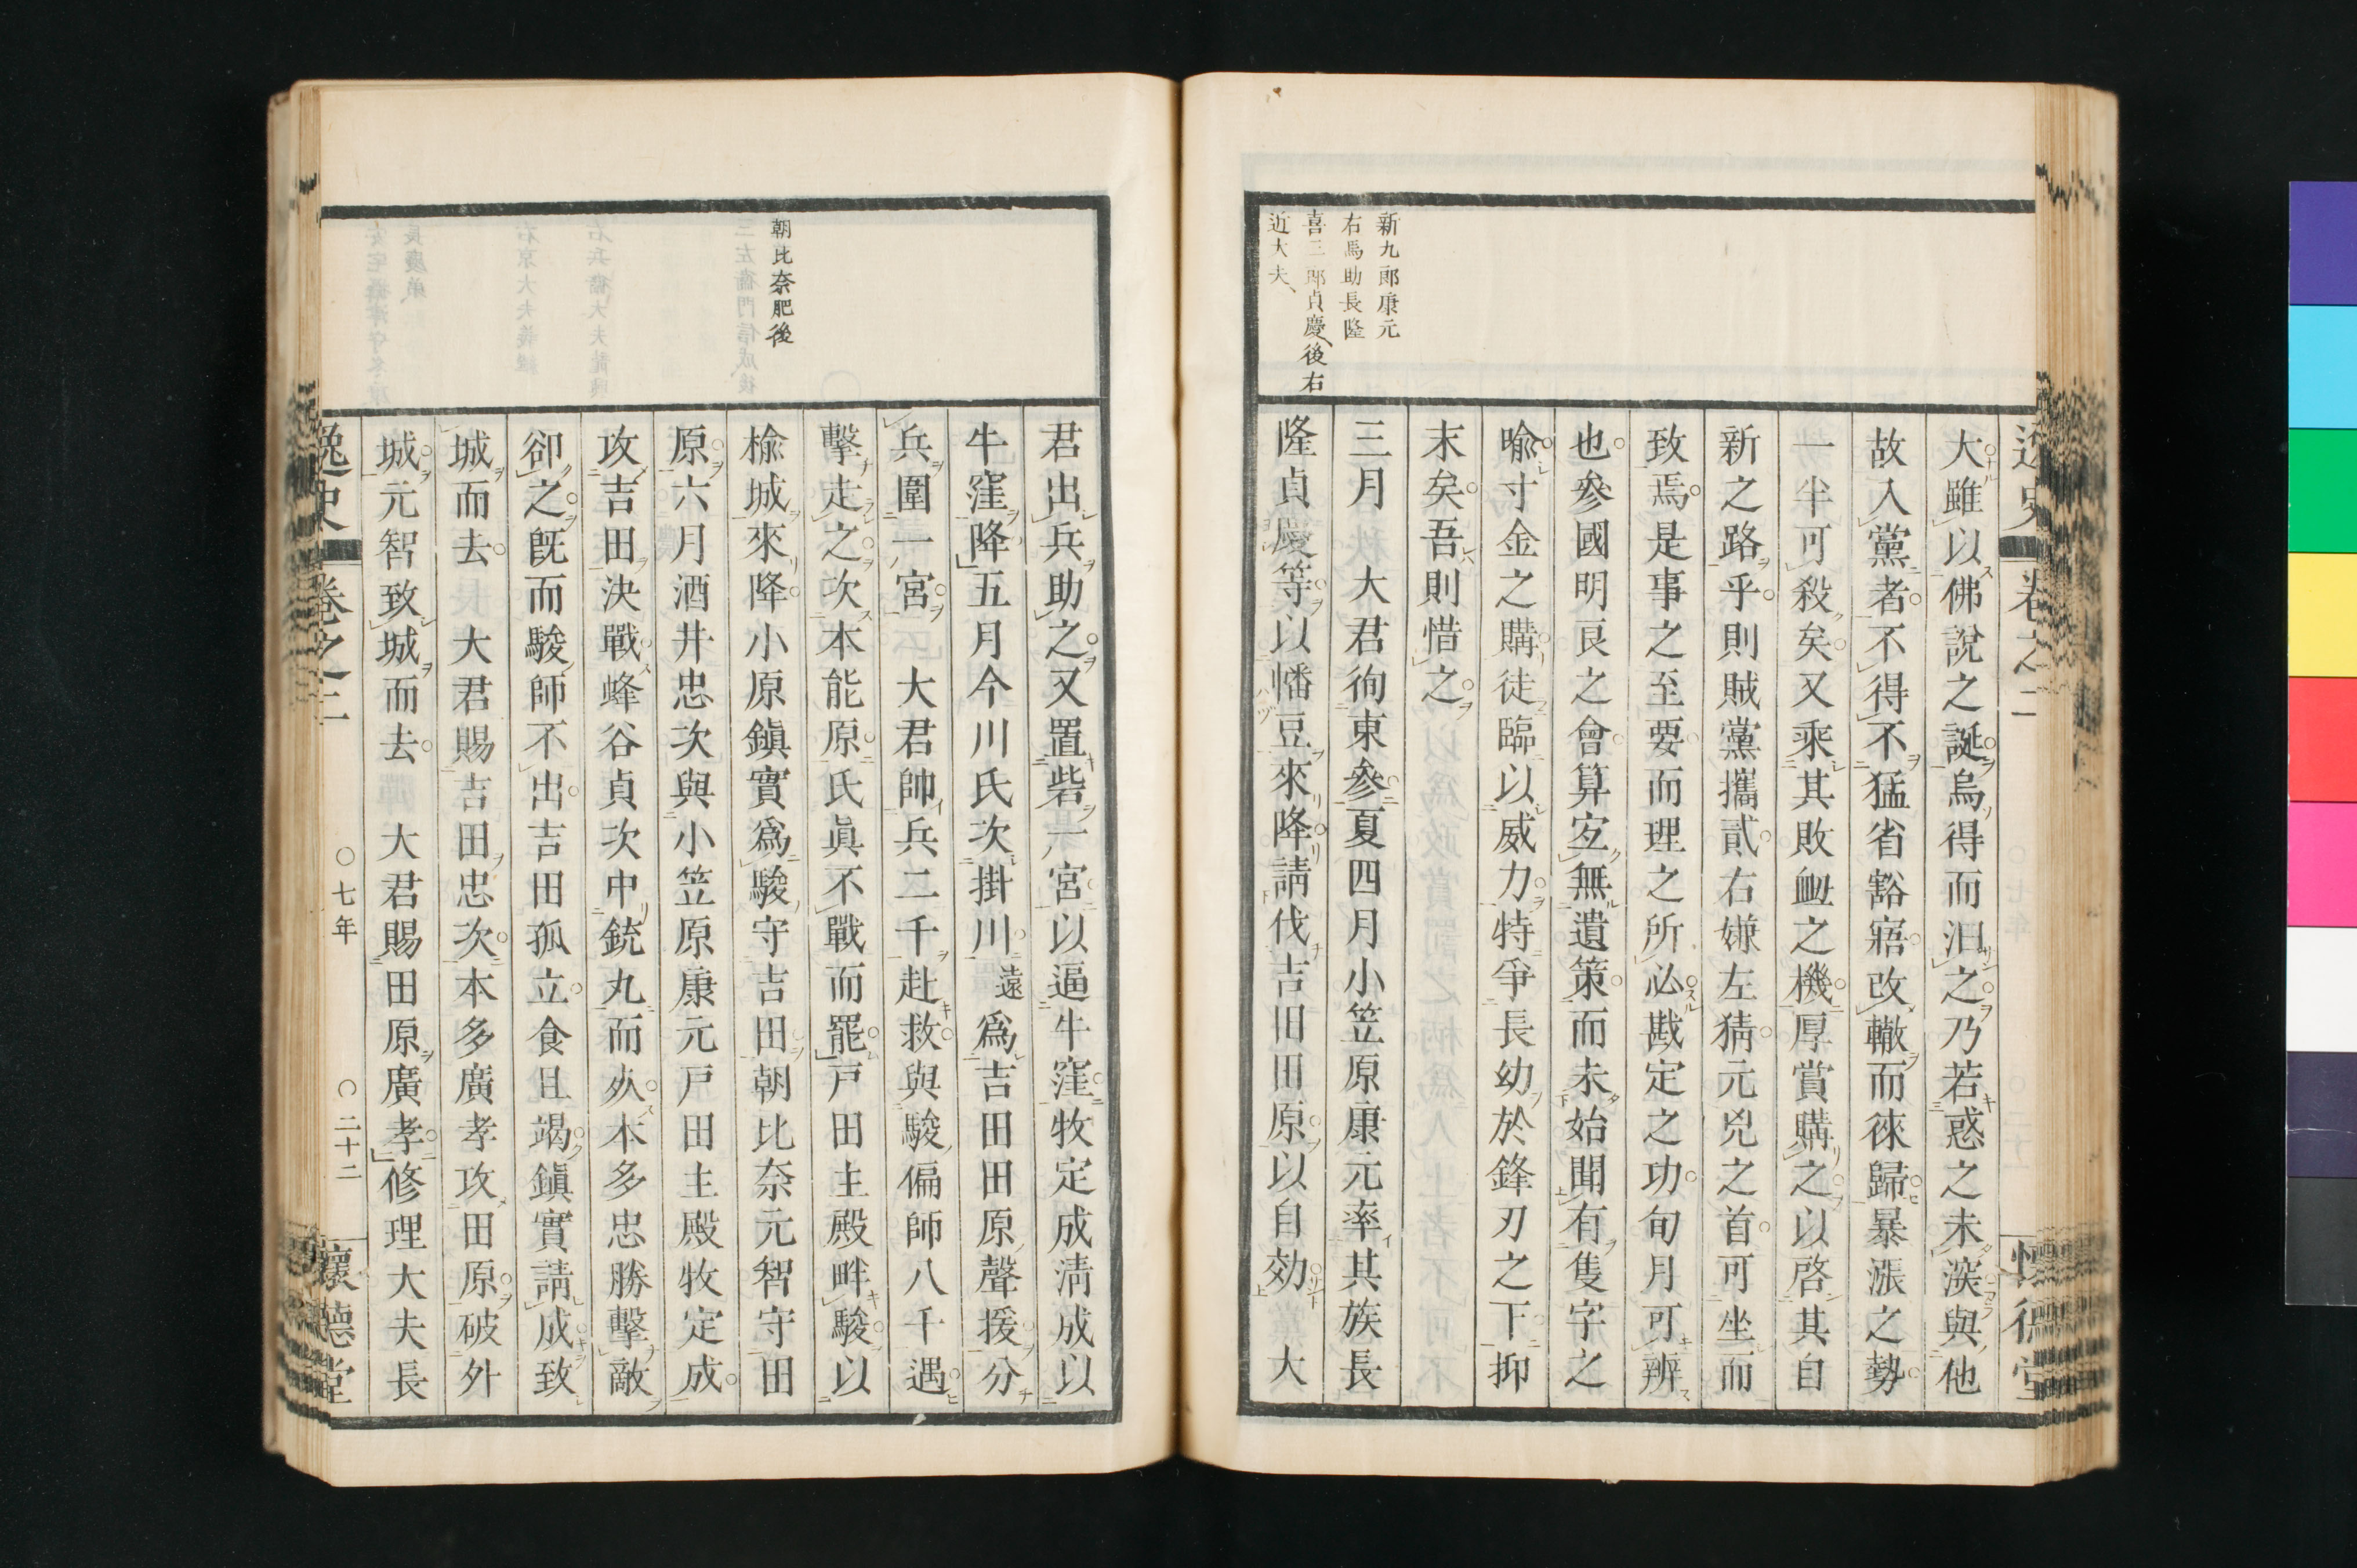 大雖以佛說之誕烏得而汩之乃若惑之未深與他
故入黨者不得不猛省豁寤改轍而徠歸暴漲之勢
一半可殺矣又乘其敗衄之機厚賞購之以啓其自
新之路乎則賊黨攜貳右嫌左猜元兇之首可坐而
致焉是事之至要而理之所必戡定之功旬月可辨
也參國明良之會算定無遺策而未始聞有隻字之
喩寸金之購徒臨以威力特爭長幼於鋒刃之下抑
末矣吾則惜之
三月　大君徇東參夏四月小笠原康元率其族長
隆貞慶等以幡豆來降請伐吉田田原以自効　大
新九郎康元
右馬助長隆
喜三郎貞慶、後右
近大夫、
君出兵助之又置砦一宮以逼牛窪牧定成淸成以
牛窪降五月今川氏次掛川遠爲吉田田原聲援分
兵圍一宮　大君帥兵二千赴救與駿偏師八千遇
擊走之次本能原氏眞不戰而罷戸田主殿畔駿以
楡城來降小原鎭實爲駿守吉田朝比奈元智守田
原六月酒井忠次與小笠原康元戸田主殿牧定成
攻吉田決戰蜂谷貞次中銃丸而死本多忠勝擊敵
卻之旣而駿師不出吉田孤立食且竭鎭實請成致
城而去　大君賜吉田忠次本多廣孝攻田原破外
城元智致城而去　大君賜田原廣孝修理大夫長
朝比奈肥後
逸史　卷之二　〇七年　〇二十二　懷德堂